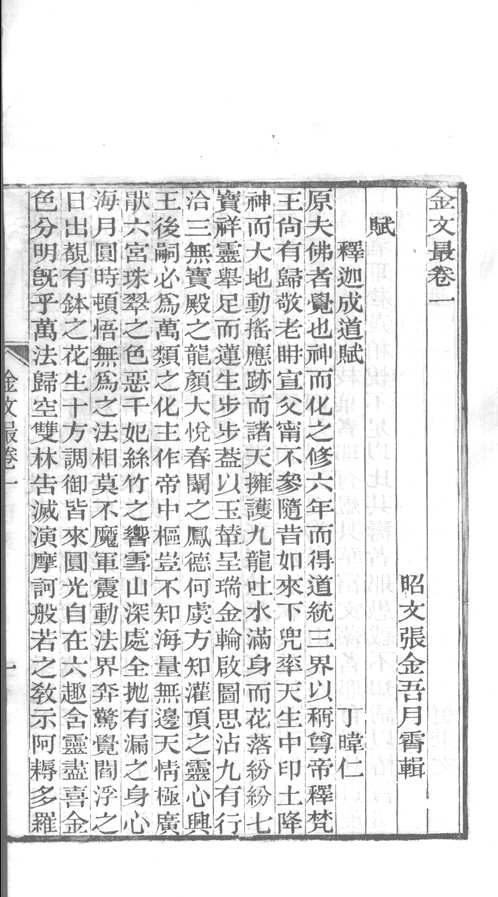 金文最卷一
昭文張金吾月霄輯
賦
釋迦成道賦 丁暐仁
原夫佛者覺也神而化之修六年而得道統三界以稱尊帝釋梵
王尙有歸敬老聃宣父甯不參隨昔如來下兜率天生中印土降
神而大地動搖應跡而諸天擁護九龍吐水滿身而花落紛紛七
寶祥靈舉足而蓮生步步葢以玉輦呈瑞金輪啟圖思沾九有行
洽三無寶殿之龍顏大悅春闈之鳳德何虞方知灌頂之靈心興
王後嗣必爲萬類之化主作帝中樞豈不知海量無邊天情極廣
猒六宮珠翠之色惡千妃絲竹之響雪山深處全抛有漏之身心
海月圓時頓悟無爲之法相莫不魔軍震動法界奔驚覺閻浮之
日出覩有鉢之花生十方調御皆來圓光自在六趣含靈盡喜金
色分明旣乎萬法歸空雙林告滅演摩訶般若之敎示阿耨多羅
金文最卷一
一